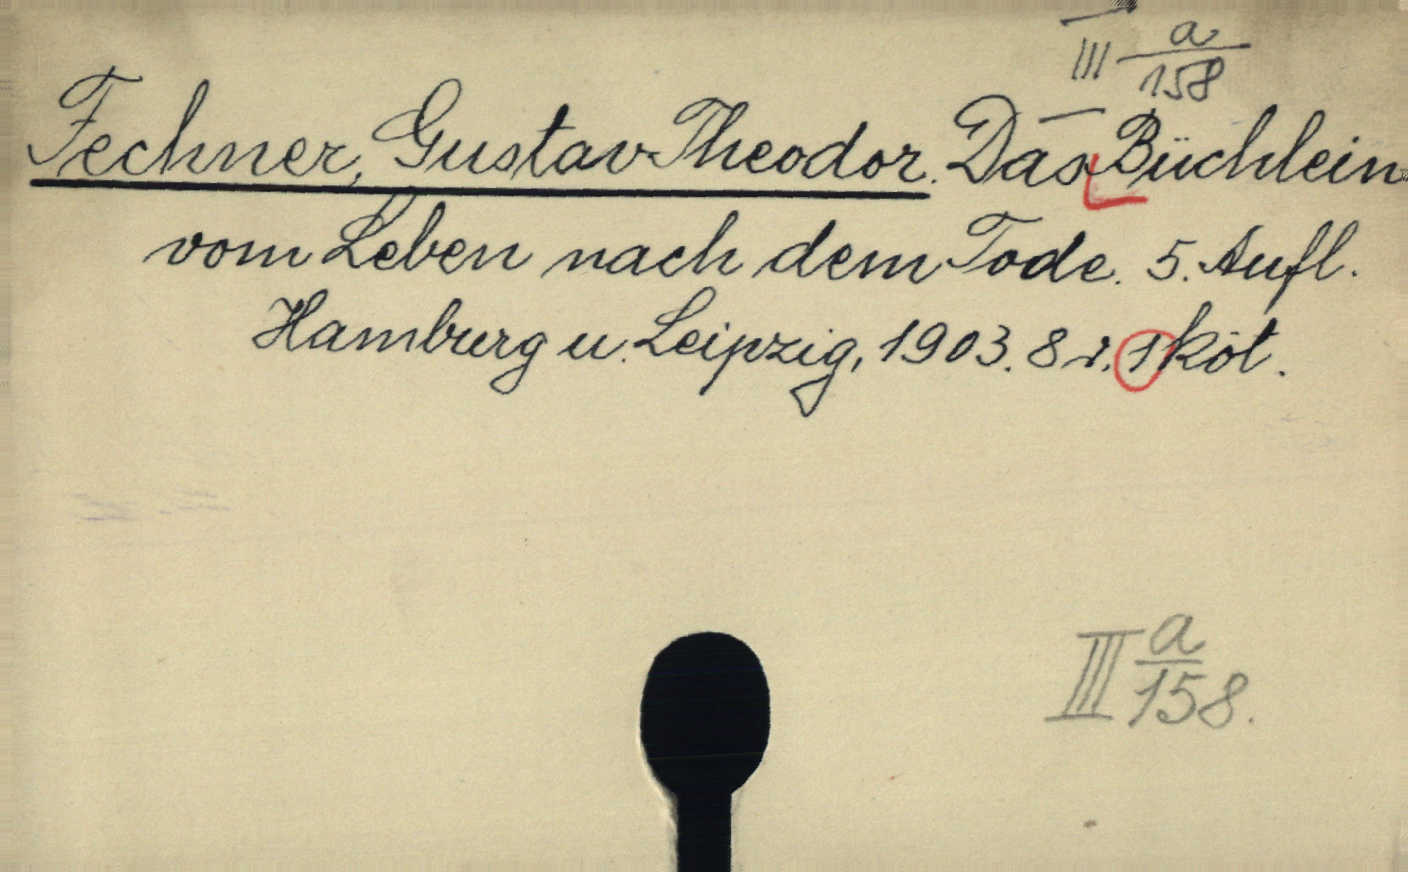 III a/158
Fechner, Gustav Theodor. Das Büchlein
vom Leben nach dem Tode. 5. Aufl.
Hamburg u. Leipzig, 1903. 8 r. 1 köt.
III a/158.